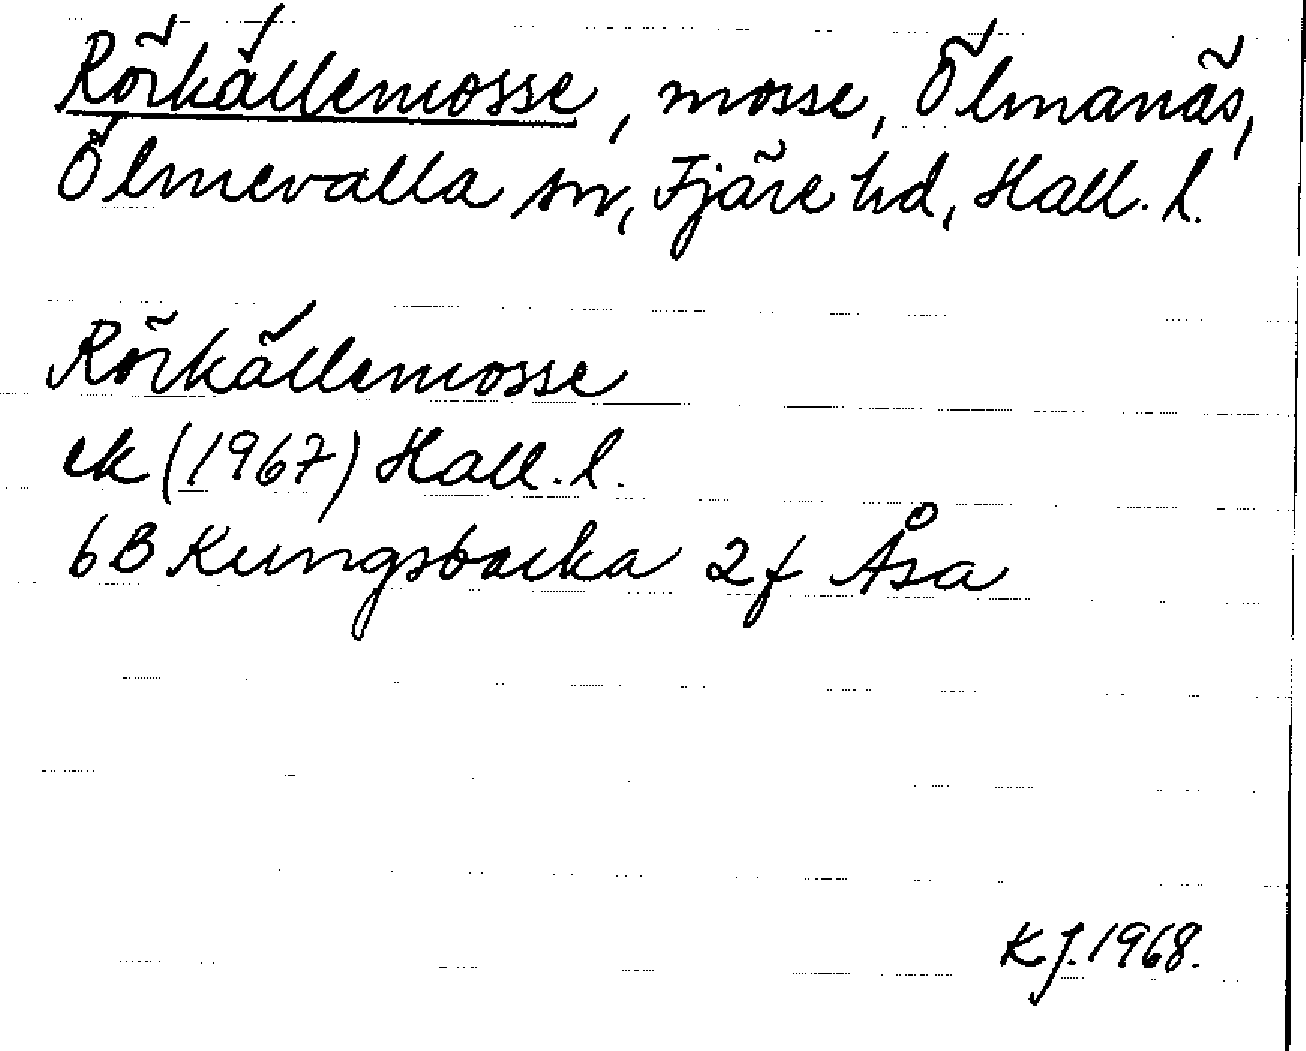 Rörkällemosse, mosse, Ölmanäs,
Ölmevalla sn, Fjäre hd, Hall. l.
Rörkällemosse
ek (1967) Hall. l.
6B Kungsbacka 2f Åsa
KJ. 1968.